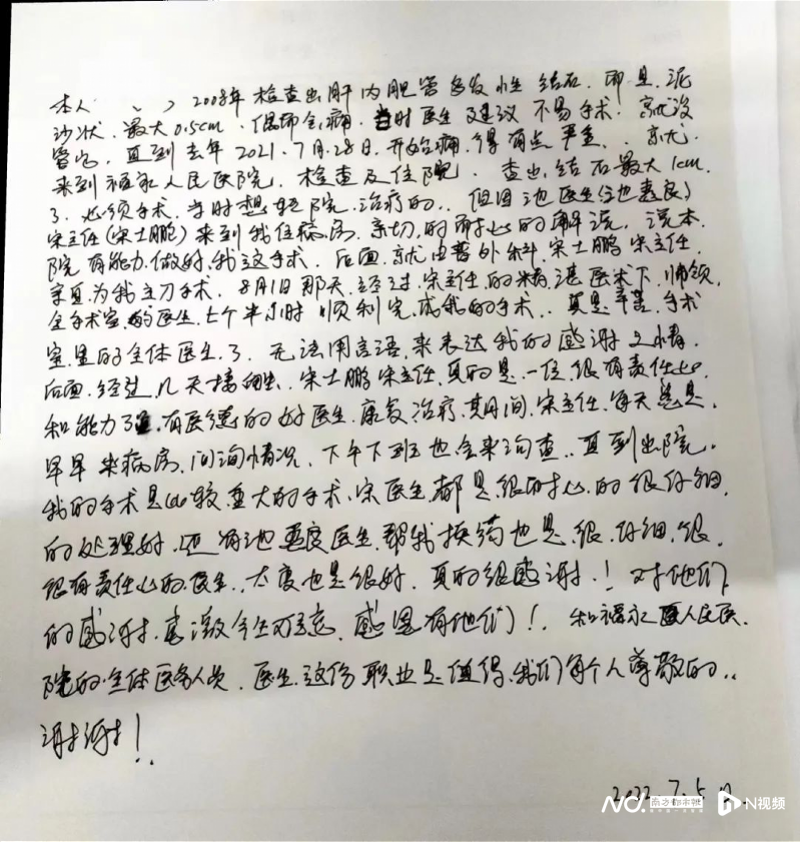 本人 2008年检查出肝内胆管多发性结石.即是泥
沙状.最大0.5cm.偶尔会痛.当时医生建议不易手术.就没
管它.直到去年2021.7月.28日.开始痛.得有点严重..就.
来到福永人民医院.检查及住院.查出.结石最大1cm.
了.必须手术.当时想转院.治疗的..但因池医生(池惠良)
宋主任(宋士鹏)来到我住病房.亲切.的耐心的解说.说本.
院有能力.做好.我这手术.后面.就由普外科.宋士鹏宋主任.
亲自为我主刀手术.8月1日那天.经过.宋主任.的精湛医术下.带领.
全手术室的医生.七个半小时顺利完.成我的手术..真是辛苦.手术
室.里的全体医生.了.无法用言语.来表达我的感谢之情.
后面.经过.几天接触.宋士鹏宋主任.真的是.一位.很有责任心.
和能力了.有医德的好医生.康复治疗.期间.宋主任.每天总是.
早早来病房.问询情况.下午下班也会来询查..直到出院.
我的手术是比较重大的手术.宋医生.都是很耐心.的很仔细.
的处理好.还有池惠良医生.帮我换药也是.很.仔细.很.
很有责任心的.医生.太度也是很好.真的很感谢.!对他们
的感谢.感激今生难忘.感恩有他们!.和福永人民医.
院的全体医务人员.医生.这份职业是值得.我们每个人尊敬的..
谢谢!
2022.7.5日
N视频
南方都市报